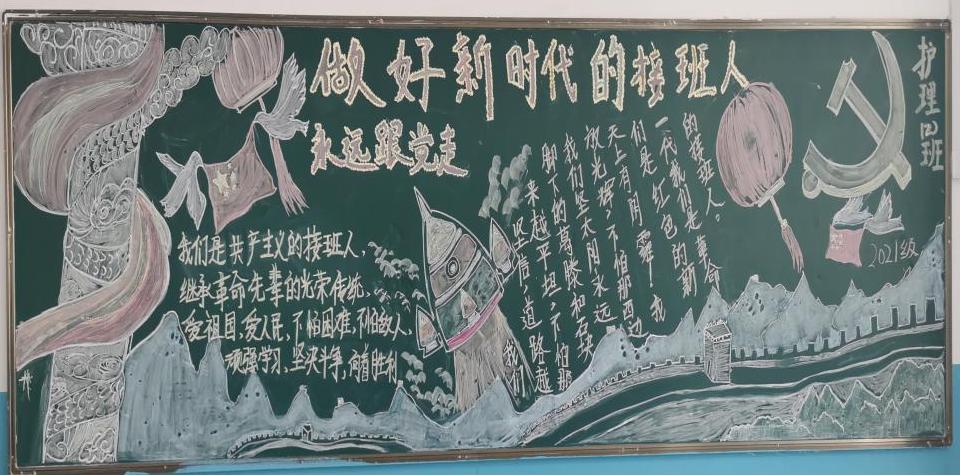 做好新时代的接班人
永远跟党走
护理四班
2021级
我们是共产主义的接班人,
继承革命先辈的光荣传统,
爱祖国,爱人民,不怕困难,不怕敌人,
顽强学习,坚决斗争,向着胜利
我们
坚信,道路越
来越平坦,不怕那
脚下的葛藤和石块
我们坚太阳永远
放光辉,不怕那西边
天上有阴霾!我
们是红色的新
一代我们是革命
的接班人。